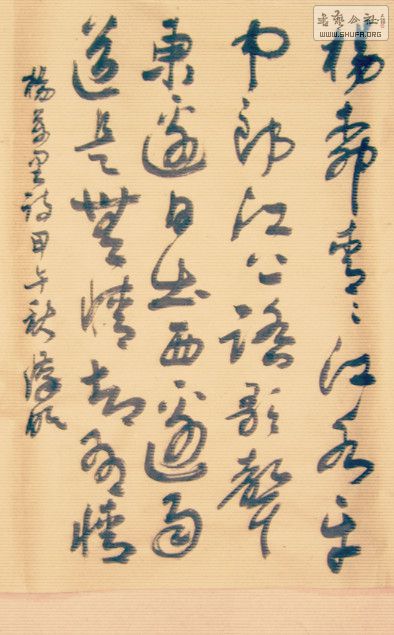 书艺公社
WWW.SHUFA.ORG
楊柳青〻江水平
聞郎江上踏歌聲
東邊日出西邊雨
道是無情却有情
楊萬里詩甲午秋